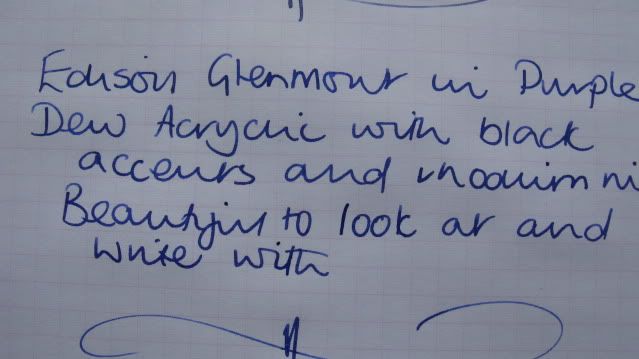 Edison Glenmont in Purple
Dew Acrylic with black
accents and rhodium ni
Beautiful to look at and
write with